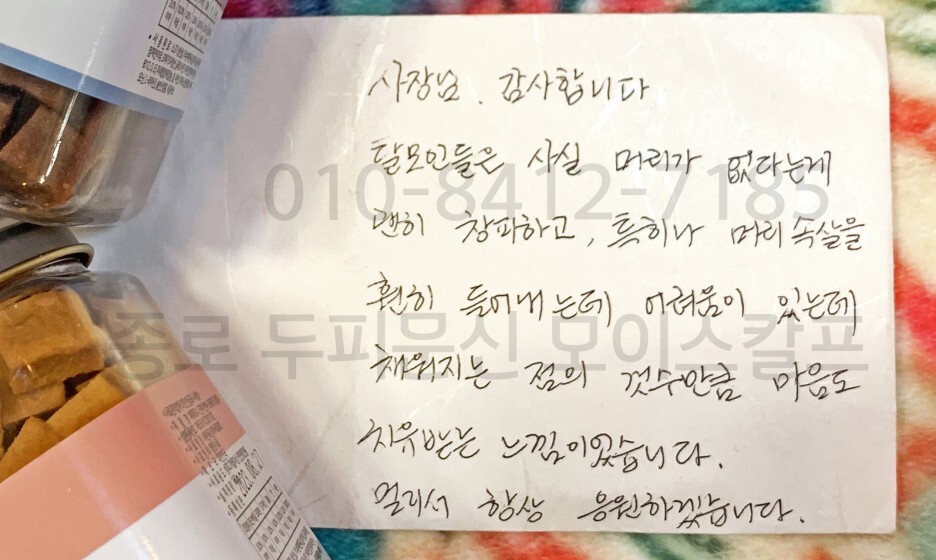 사장님. 감사합니다
탈모인들은 사실 머리가 없다는게
010-8412-7185
괜히 창피하고, 특히나 머리 속살을
훤히 들어내는데 어려움이 있는데
종로 두피문신 모이스칼프
채워지는 점의 갯수만큼 마음도
치유받는 느낌이었습니다.
멀리서 항상 응원하겠습니다.